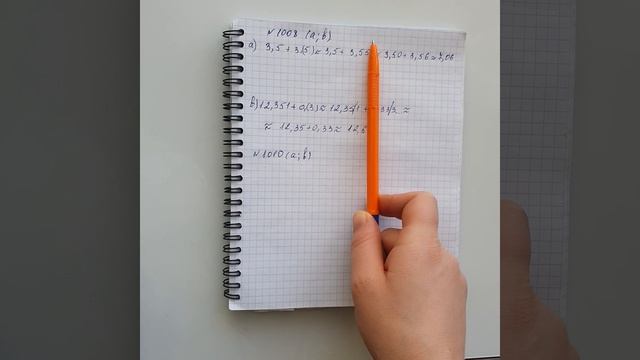 №1008 (а; в)
а) 3,5 + 3,(5) ≈ 3,5 + 3,55 3,50 + 3,56 ≈ 7,06
в) 12,351 + 0,(3) ≈ 12,35/1 + 33/3... ≈
≈ 12,35 + 0,33 ≈ 12,
№1010 (а; в)